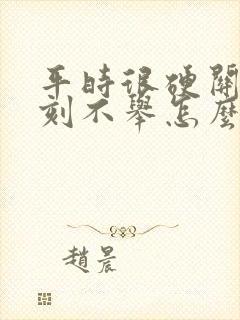 平時很硬關
刻不舉怎麼
趙晨